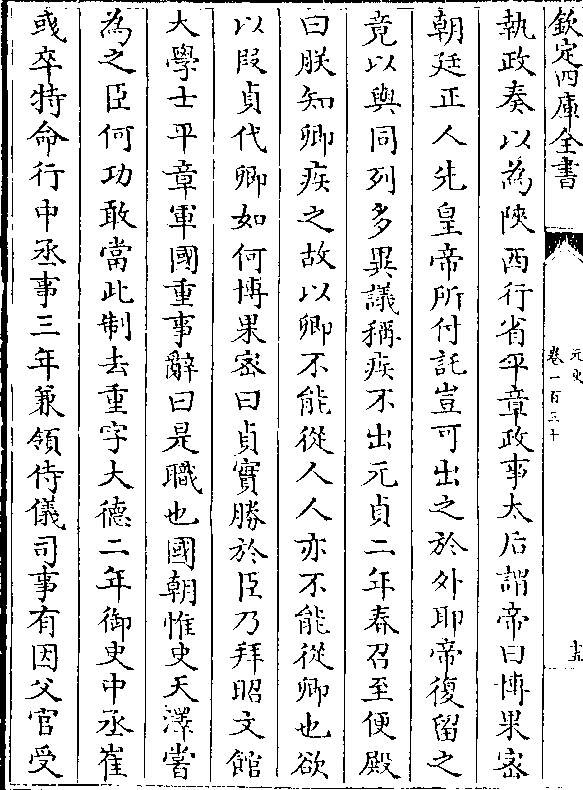 欽定四庫全書
元史
卷一百三十
十五
執政奏以為陝西行省平章政事太后謂帝曰博果宻
朝廷正人先皇帝所付託豈可出之於外耶帝復留之
竟以與同列多異議稱疾不出元貞二年春召至便殿
曰朕知卿疾之故以卿不能從人人亦不能從卿也欲
以叚貞代卿如何博果宻曰貞實勝於臣乃拜昭文館
大學士平章軍國重事辭曰是職也國朝惟史天澤嘗
為之臣何功敢當此制去重字大德二年御史中丞崔
彧卒特命行中丞事三年兼領侍儀司事有因父官受